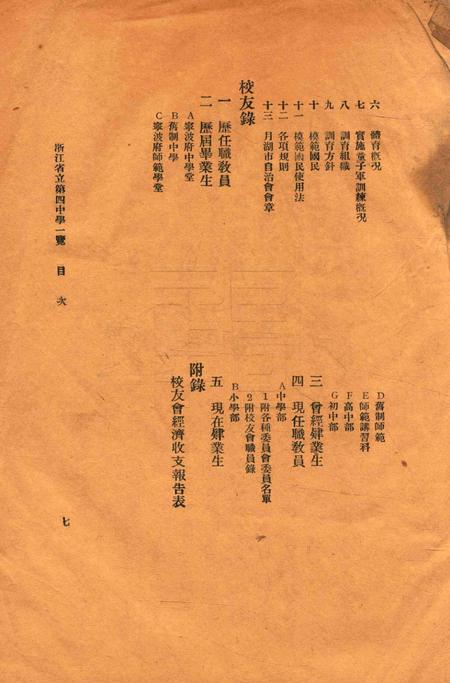 六 體育概況
七 實施童子軍訓練概況
八 訓育組織
九 訓育方針
十 模範國民
十一 模範國民使用法
十二 各項規則
十三 月湖市自治會會章
校友錄
一 歷任職教員
二 歷屆畢業生
A 寧波府中學堂
B 舊制中學
C 寧波府師範學堂
D 舊制師範
E 師範講習科
F 高中部
G 初中部
三 曾經肄業生
四 現任職教員
A 中學部
1 附各種委員會委員名單
2 附校友會職員錄
B 小學部
五 現在肄業生
附錄
校友會經濟收支報告表
浙江省立第四中學一覽 目次
七